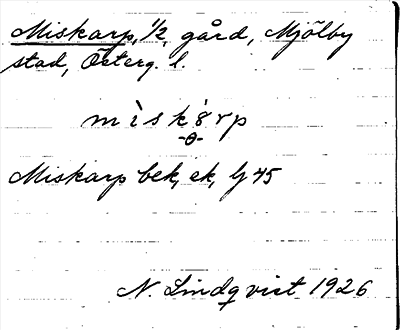 Miskarp, 1/2, gård, Mjölby
stad, Österg. l.
mìskˈ8rp
-θ-
Miskarp bek, ek, lj 45
N. Lindqvist 1926